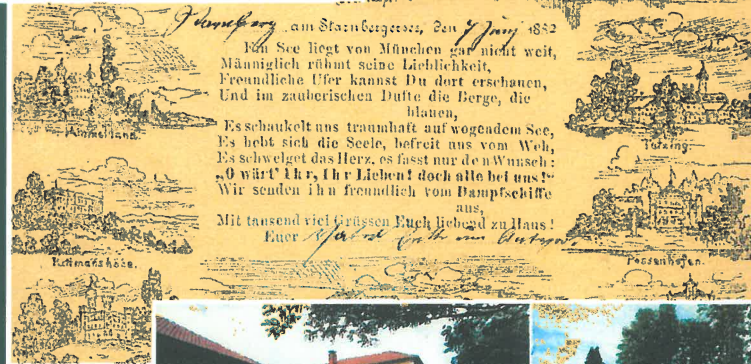 Starnberg am Starnbergersee, den 7 Juni 1882
Ein See liegt von München gar nicht weit,
Männiglich rühmt seine Lieblichkeit,
Freundliche Ufer kannst Du dort erschauen,
Und im zauberischen Dufte die Berge, die
blauen,
Es schaukelt uns traumhaft auf wogendem See,
Es hebt sich die Seele, befreit uns vom Weh,
Es schwelget das Herz, es fasst nur den Wunsch:
„O wärt' Ihr, Ihr Lieben! doch alle bei uns!"
Wir senden ihn freundlich vom Dampfschiffe
aus,
Mit tausend viel Grüssen Euch liebend zu Haus!
Euer
Ammerland.
Tutzing.
Possenhofen.